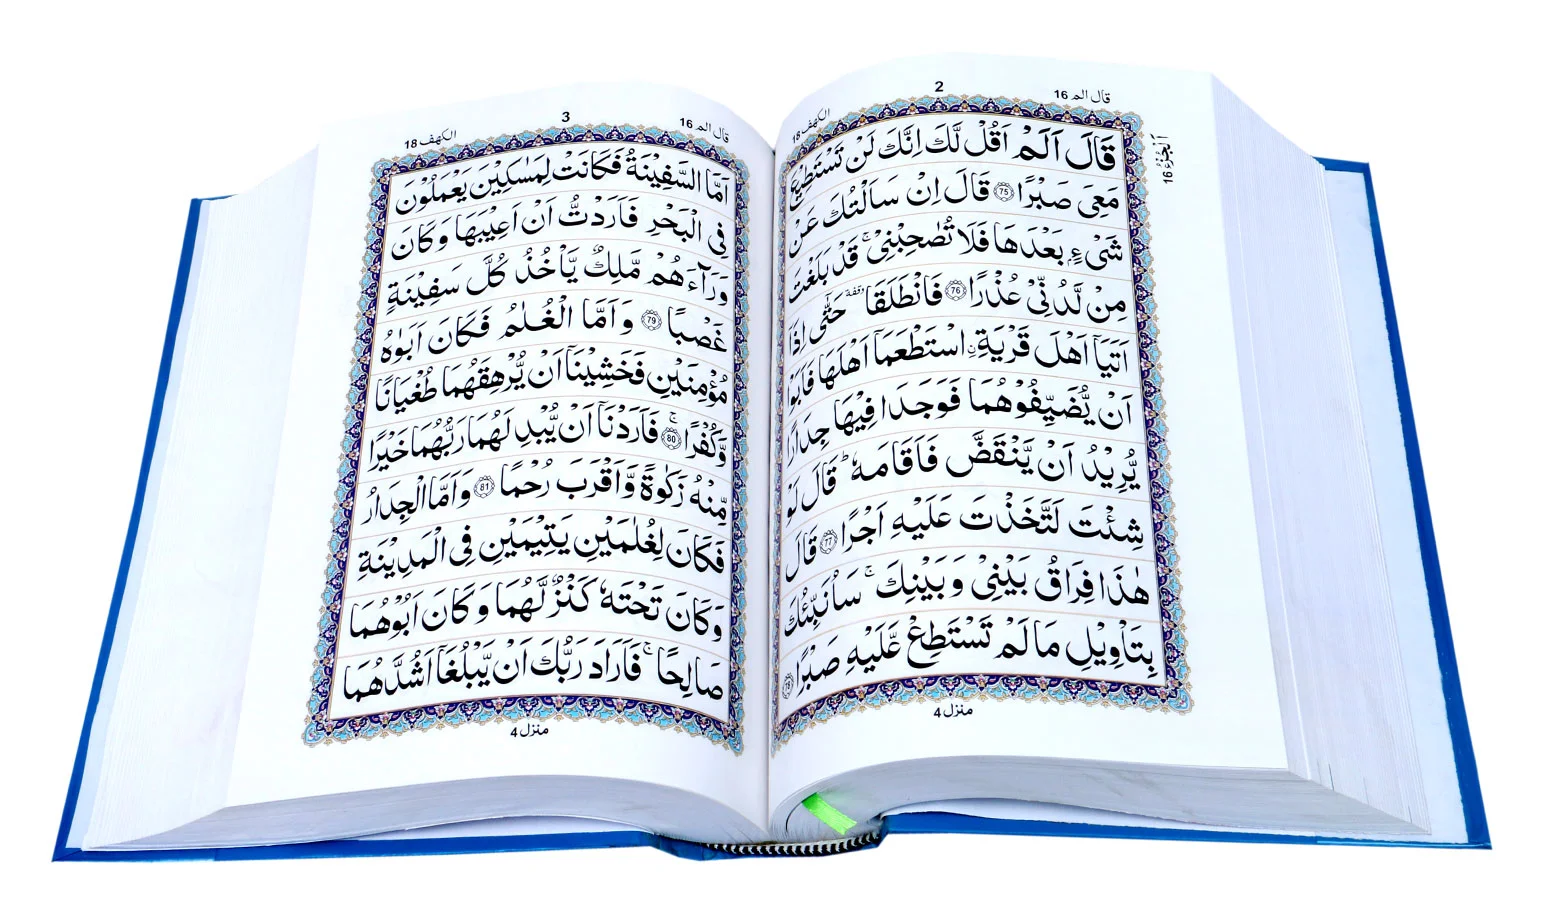 2
قال الم 16
الكهف 18
اَلْجُزْءُ 16
قَالَ اَلَمْ اَقُلْ لَّكَ اِنَّكَ لَنْ تَسْتَطِيْعَ
مَعِىَ صَبْرًا ۝75 قَالَ اِنْ سَاَلْتُكَ عَنْ
شَىْءٍۭ بَعْدَهَا فَلَا تُصٰحِبْنِىْ ۚ قَدْ بَلَغْتَ
مِنْ لَّدُنِّىْ عُذْرًا ۝76 فَانْطَلَقَا وقفة حَتّٰٓى اِذَآ
اَتَيَآ اَهْلَ قَرْيَةِ ۨاسْتَطْعَمَآ اَهْلَهَا فَاَبَوْا
اَنْ يُّضَيِّفُوْهُمَا فَوَجَدَا فِيْهَا جِدَارًا
يُّرِيْدُ اَنْ يَّنْقَضَّ فَاَقَامَهٗ ؕ قَالَ لَوْ
شِئْتَ لَتَّخَذْتَ عَلَيْهِ اَجْرًا ۝77 قَالَ
هٰذَا فِرَاقُ بَيْنِىْ وَبَيْنِكَ ۚ سَاُنَبِّئُكَ
بِتَاْوِيْلِ مَا لَمْ تَسْتَطِعْ عَّلَيْهِ صَبْرًا ۝78
منزل 4
3
قال الم 16
الكهف 18
اَمَّا السَّفِيْنَةُ فَكَانَتْ لِمَسٰكِيْنَ يَعْمَلُوْنَ
فِى الْبَحْرِ فَاَرَدْتُّ اَنْ اَعِيْبَهَا وَكَانَ
وَرَآءَهُمْ مَّلِكٌ يَّاْخُذُ كُلَّ سَفِيْنَةٍ
غَصْبًا ۝79 وَاَمَّا الْغُلٰمُ فَكَانَ اَبَوٰهُ
مُؤْمِنَيْنِ فَخَشِيْنَآ اَنْ يُّرْهِقَهُمَا طُغْيَانًا
وَّكُفْرًا ۚ ۝80 فَاَرَدْنَآ اَنْ يُّبْدِلَهُمَا رَبُّهُمَا خَيْرًا
مِّنْهُ زَكٰوةً وَّاَقْرَبَ رُحْمًا ۝81 وَاَمَّا الْجِدَارُ
فَكَانَ لِغُلٰمَيْنِ يَتِيْمَيْنِ فِى الْمَدِيْنَةِ
وَكَانَ تَحْتَهٗ كَنْزٌ لَّهُمَا وَكَانَ اَبُوْهُمَا
صَالِحًا ۚ فَاَرَادَ رَبُّكَ اَنْ يَّبْلُغَآ اَشُدَّهُمَا
منزل 4